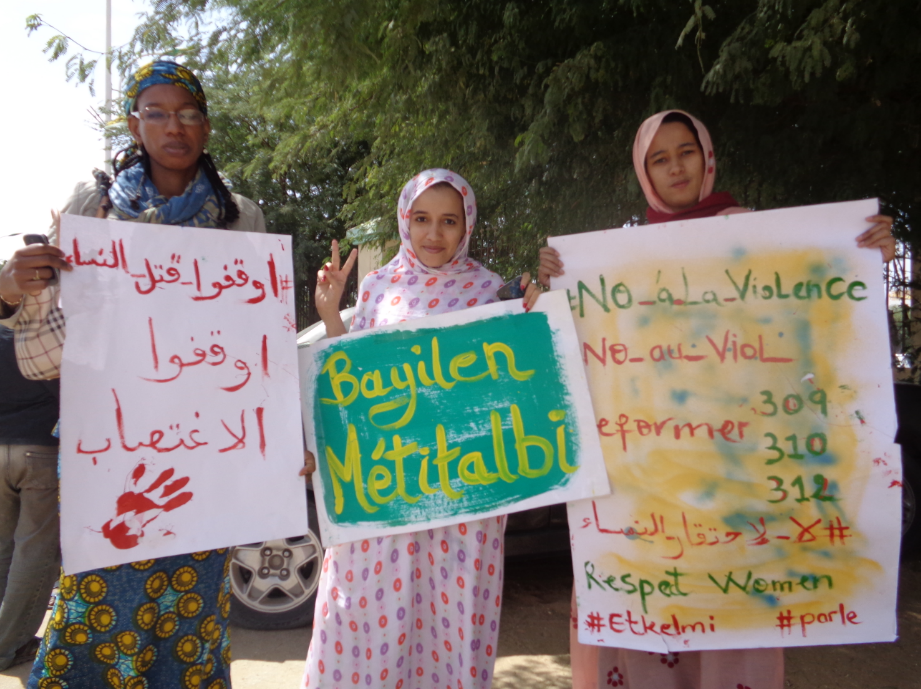 #اوقفوا_قتل_النساء
اوقفوا
الاغتصاب
Bayilen
Métitalbi
#No_à_La_Violence
No_au_Viol
reformer
309
310
312
#لا_لاحتقار_النساء
Respet Women
#Etkelmi #parle